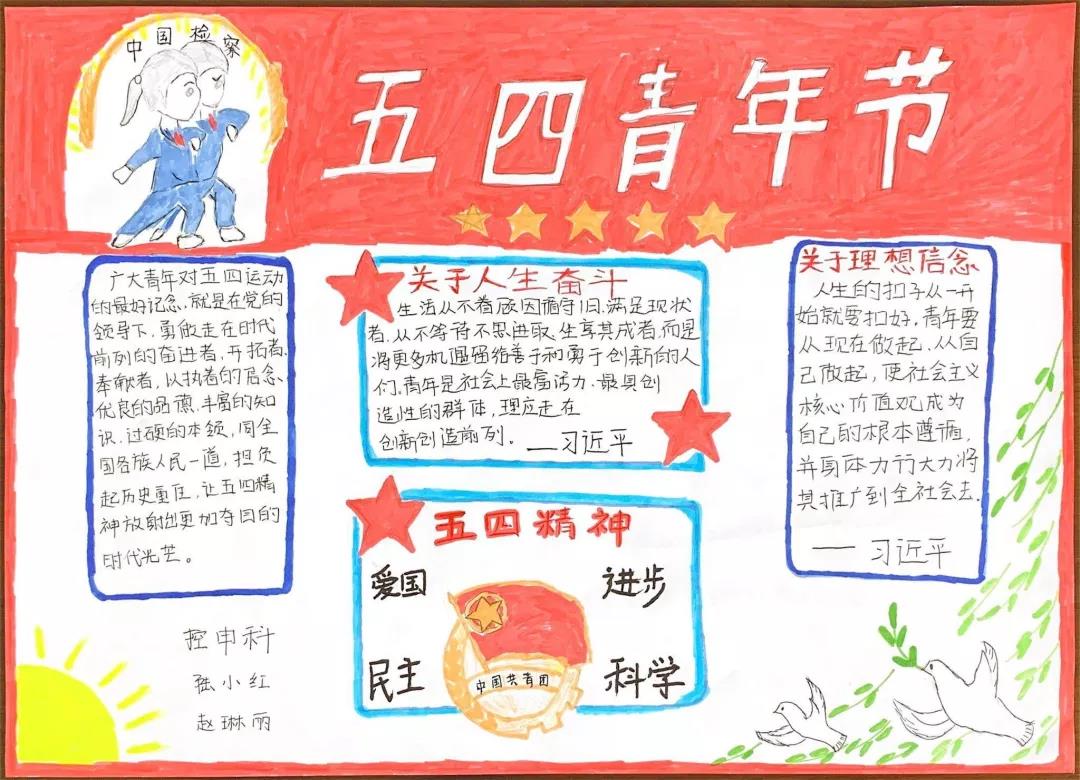 中国检察
五四青年节
广大青年对五四运动
的最好记念，就是在党的
领导下，勇做走在时代
前列的奋进者，开拓者，
奉献者，以执着的信念，
优良的品德，丰富的知
识，过硬的本领，同全
国各族人民一道，担负
起历史重任，让五四精
神放射出更加夺目的
时代光芒。
控申科
张小红
赵琳丽
关于人生奋斗
生活从不眷顾因循守旧，满足现状
者，从不等待不思进取、坐享其成者，而是
将更多机遇留给善于和勇于创新的人
们，青年是社会上最富活力、最具创
造性的群体，理应走在
创新创造前列。 —习近平
五四精神
爱国 进步
民主 科学
中国共青团
关于理想信念
人生的扣子从一开
始就要扣好，青年要
从现在做起、从自
己做起，使社会主义
核心价值观成为
自己的根本遵循，
并身体力行大力将
其推广到全社会去。
— 习近平